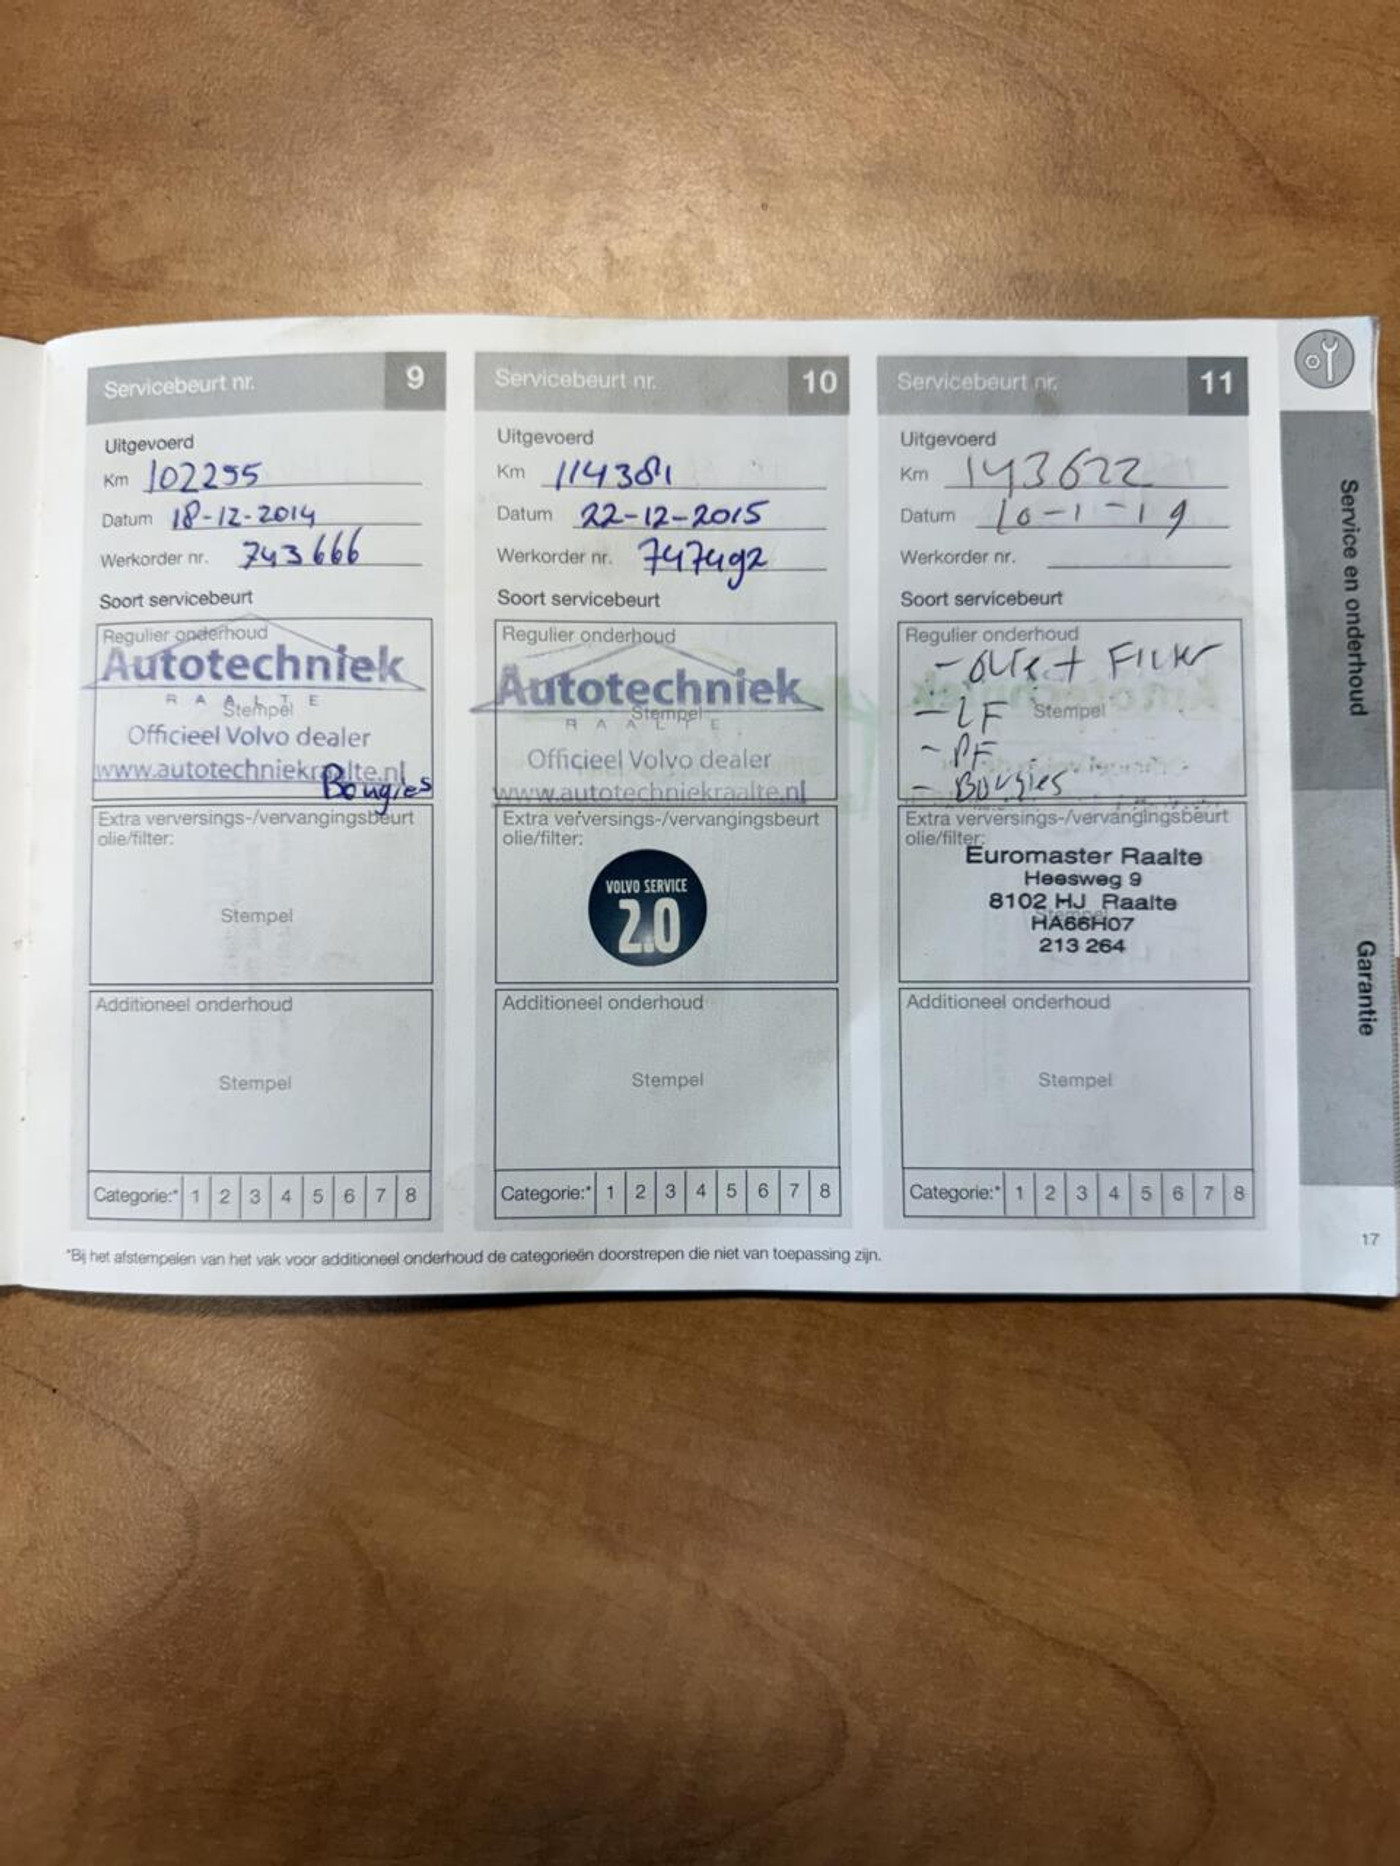 Servicebeurt nr. 9
Uitgevoerd
Km 102255
Datum 18-12-2014
Werkorder nr. 743666
Soort servicebeurt
Regulier onderhoud
Autotechniek
RAALTE
Stempel
Officieel Volvo dealer
www.autotechniekraalte.nl
Bougies
Extra verversings-/vervangingsbeurt
olie/filter:
Stempel
Additioneel onderhoud
Stempel
Categorie:* 1 2 3 4 5 6 7 8
Servicebeurt nr. 10
Uitgevoerd
Km 114381
Datum 22-12-2015
Werkorder nr. 747492
Soort servicebeurt
Regulier onderhoud
Autotechniek
Stempel
RAALTE
Officieel Volvo dealer
www.autotechniekraalte.nl
Extra verversings-/vervangingsbeurt
olie/filter:
VOLVO SERVICE
2.0
Additioneel onderhoud
Stempel
Categorie:* 1 2 3 4 5 6 7 8
Servicebeurt nr. 11
Uitgevoerd
Km 143622
Datum 10-1-19
Werkorder nr.
Soort servicebeurt
Regulier onderhoud
- olie + Filter
- LF Stempel
- PF
- Bougies
Extra verversings-/vervangingsbeurt
olie/filter:
Euromaster Raalte
Heesweg 9
8102 HJ Raalte
Stempel
HA66H07
213 264
Additioneel onderhoud
Stempel
Categorie:* 1 2 3 4 5 6 7 8
*Bij het afstempelen van het vak voor additioneel onderhoud de categorieën doorstrepen die niet van toepassing zijn.
Service en onderhoud
Garantie
17